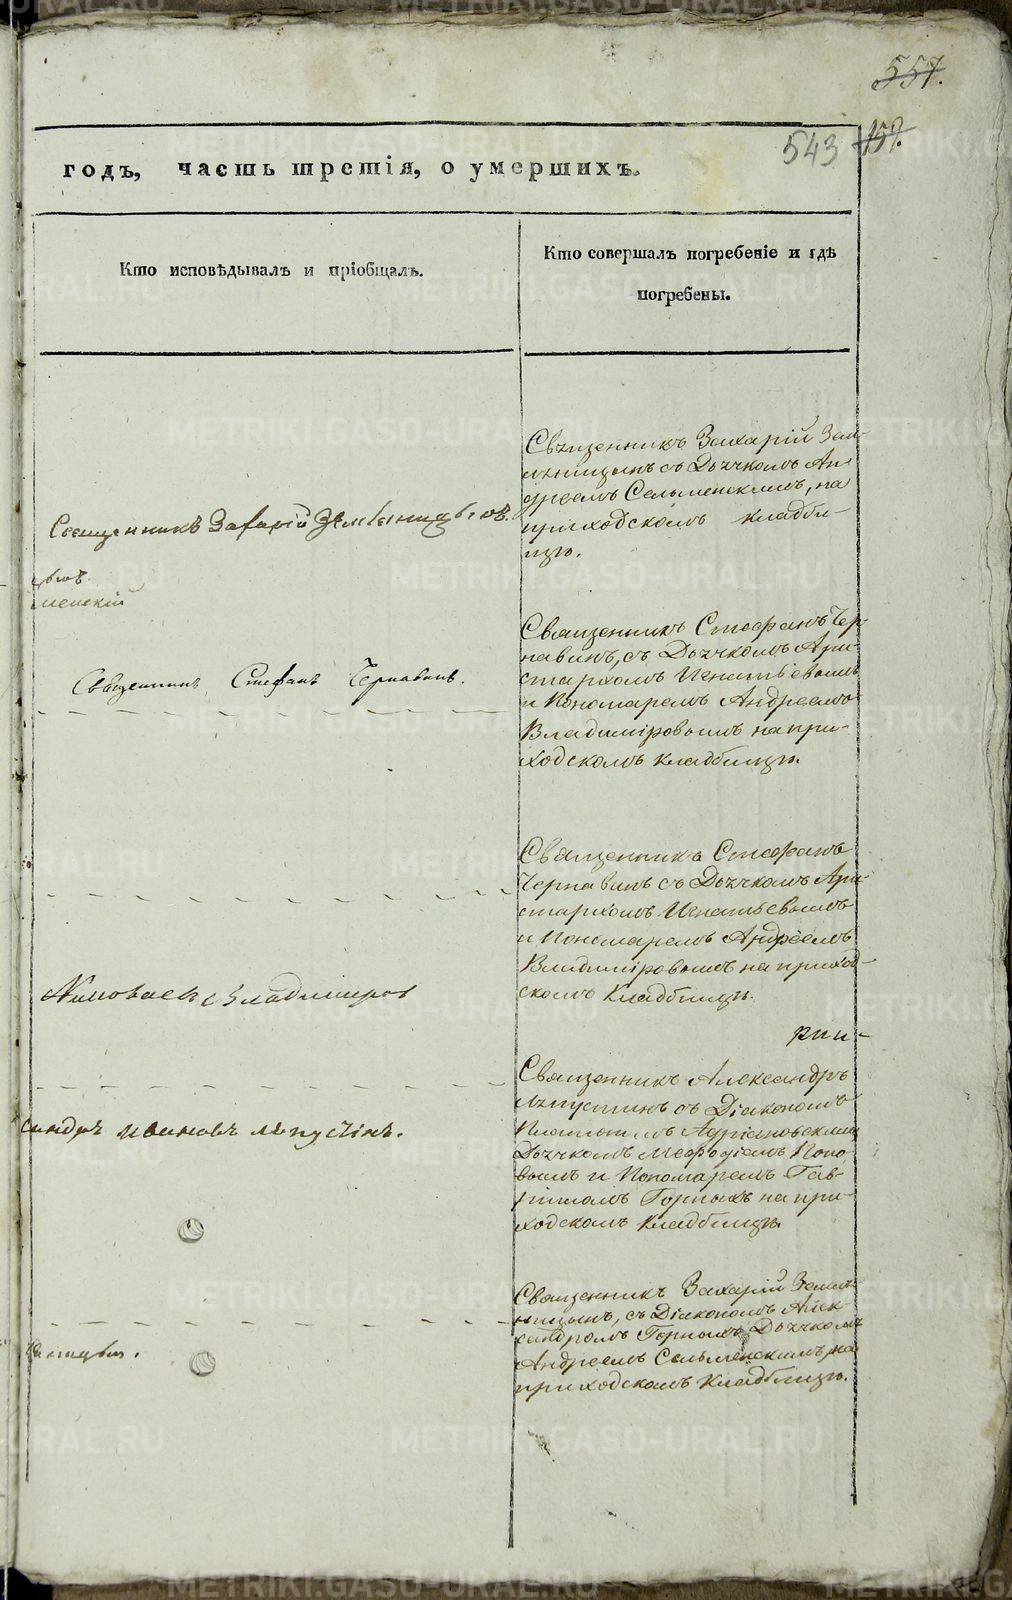 557.
543 159.
годъ, часть третія, о умершихъ.
Кто исповѣдывалъ и пріобщалъ.
Кто совершалъ погребеніе и гдѣ
погребены.
Священникъ Захарій Зем-
ляницынъ съ Дьячкомъ Ан-
дреемъ Сельменскимъ, на
приходскомъ кладби-
щѣ.
Священникъ Захарій Земляницынъ.
менскій
Священникъ Стефанъ Чер-
навинъ, съ Дьячкомъ Ари-
стархомъ Игнатьевымъ
и Пономаремъ Андреемъ
Владиміровымъ на при-
ходскомъ кладбищѣ.
Священникъ Стефанъ Чернавинъ.
Священникъ Стефанъ
Чернавинъ съ Дьячкомъ Ари-
стархомъ Игнатьевымъ
и Пономаремъ Андреемъ
Владиміровымъ на приход-
скомъ кладбищѣ.
Владимиров
рии-
Священникъ Александръ
Лѣпустинъ съ Діакономъ
Платономъ Адріановскимъ
Дьячкомъ Мефодіемъ Попо-
вымъ и Пономаремъ Гав-
ріиломъ Горныхъ на при-
ходскомъ кладбищѣ
сандръ Ивановъ Лепустінъ.
Священникъ Захарій Земля-
ницынъ, съ Діакономъ Алек-
сандромъ Горнымъ Дьячкомъ
Андреемъ Сельменскимъ, на
приходскомъ кладбищѣ.
METRIKI.GASO-URAL.RU